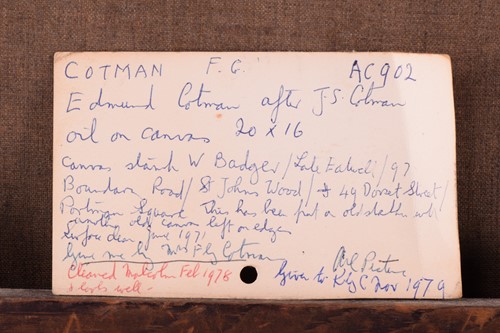 COTMAN F. G. AC902
Edmund Cotman after J.S. Cotman
oil on canvas 20 x 16
Canvas stamp W Badger / Late / 97
Boundary Road / St Johns Wood / & 49 Dorset Street /
Portman Square This has been put on old with
another old canvas left on edges
Surface clean June 1971
Given me by Mrs Cotman
Cleaned Malcolm Feb 1978 Given to C Nov 1979
& looks well -